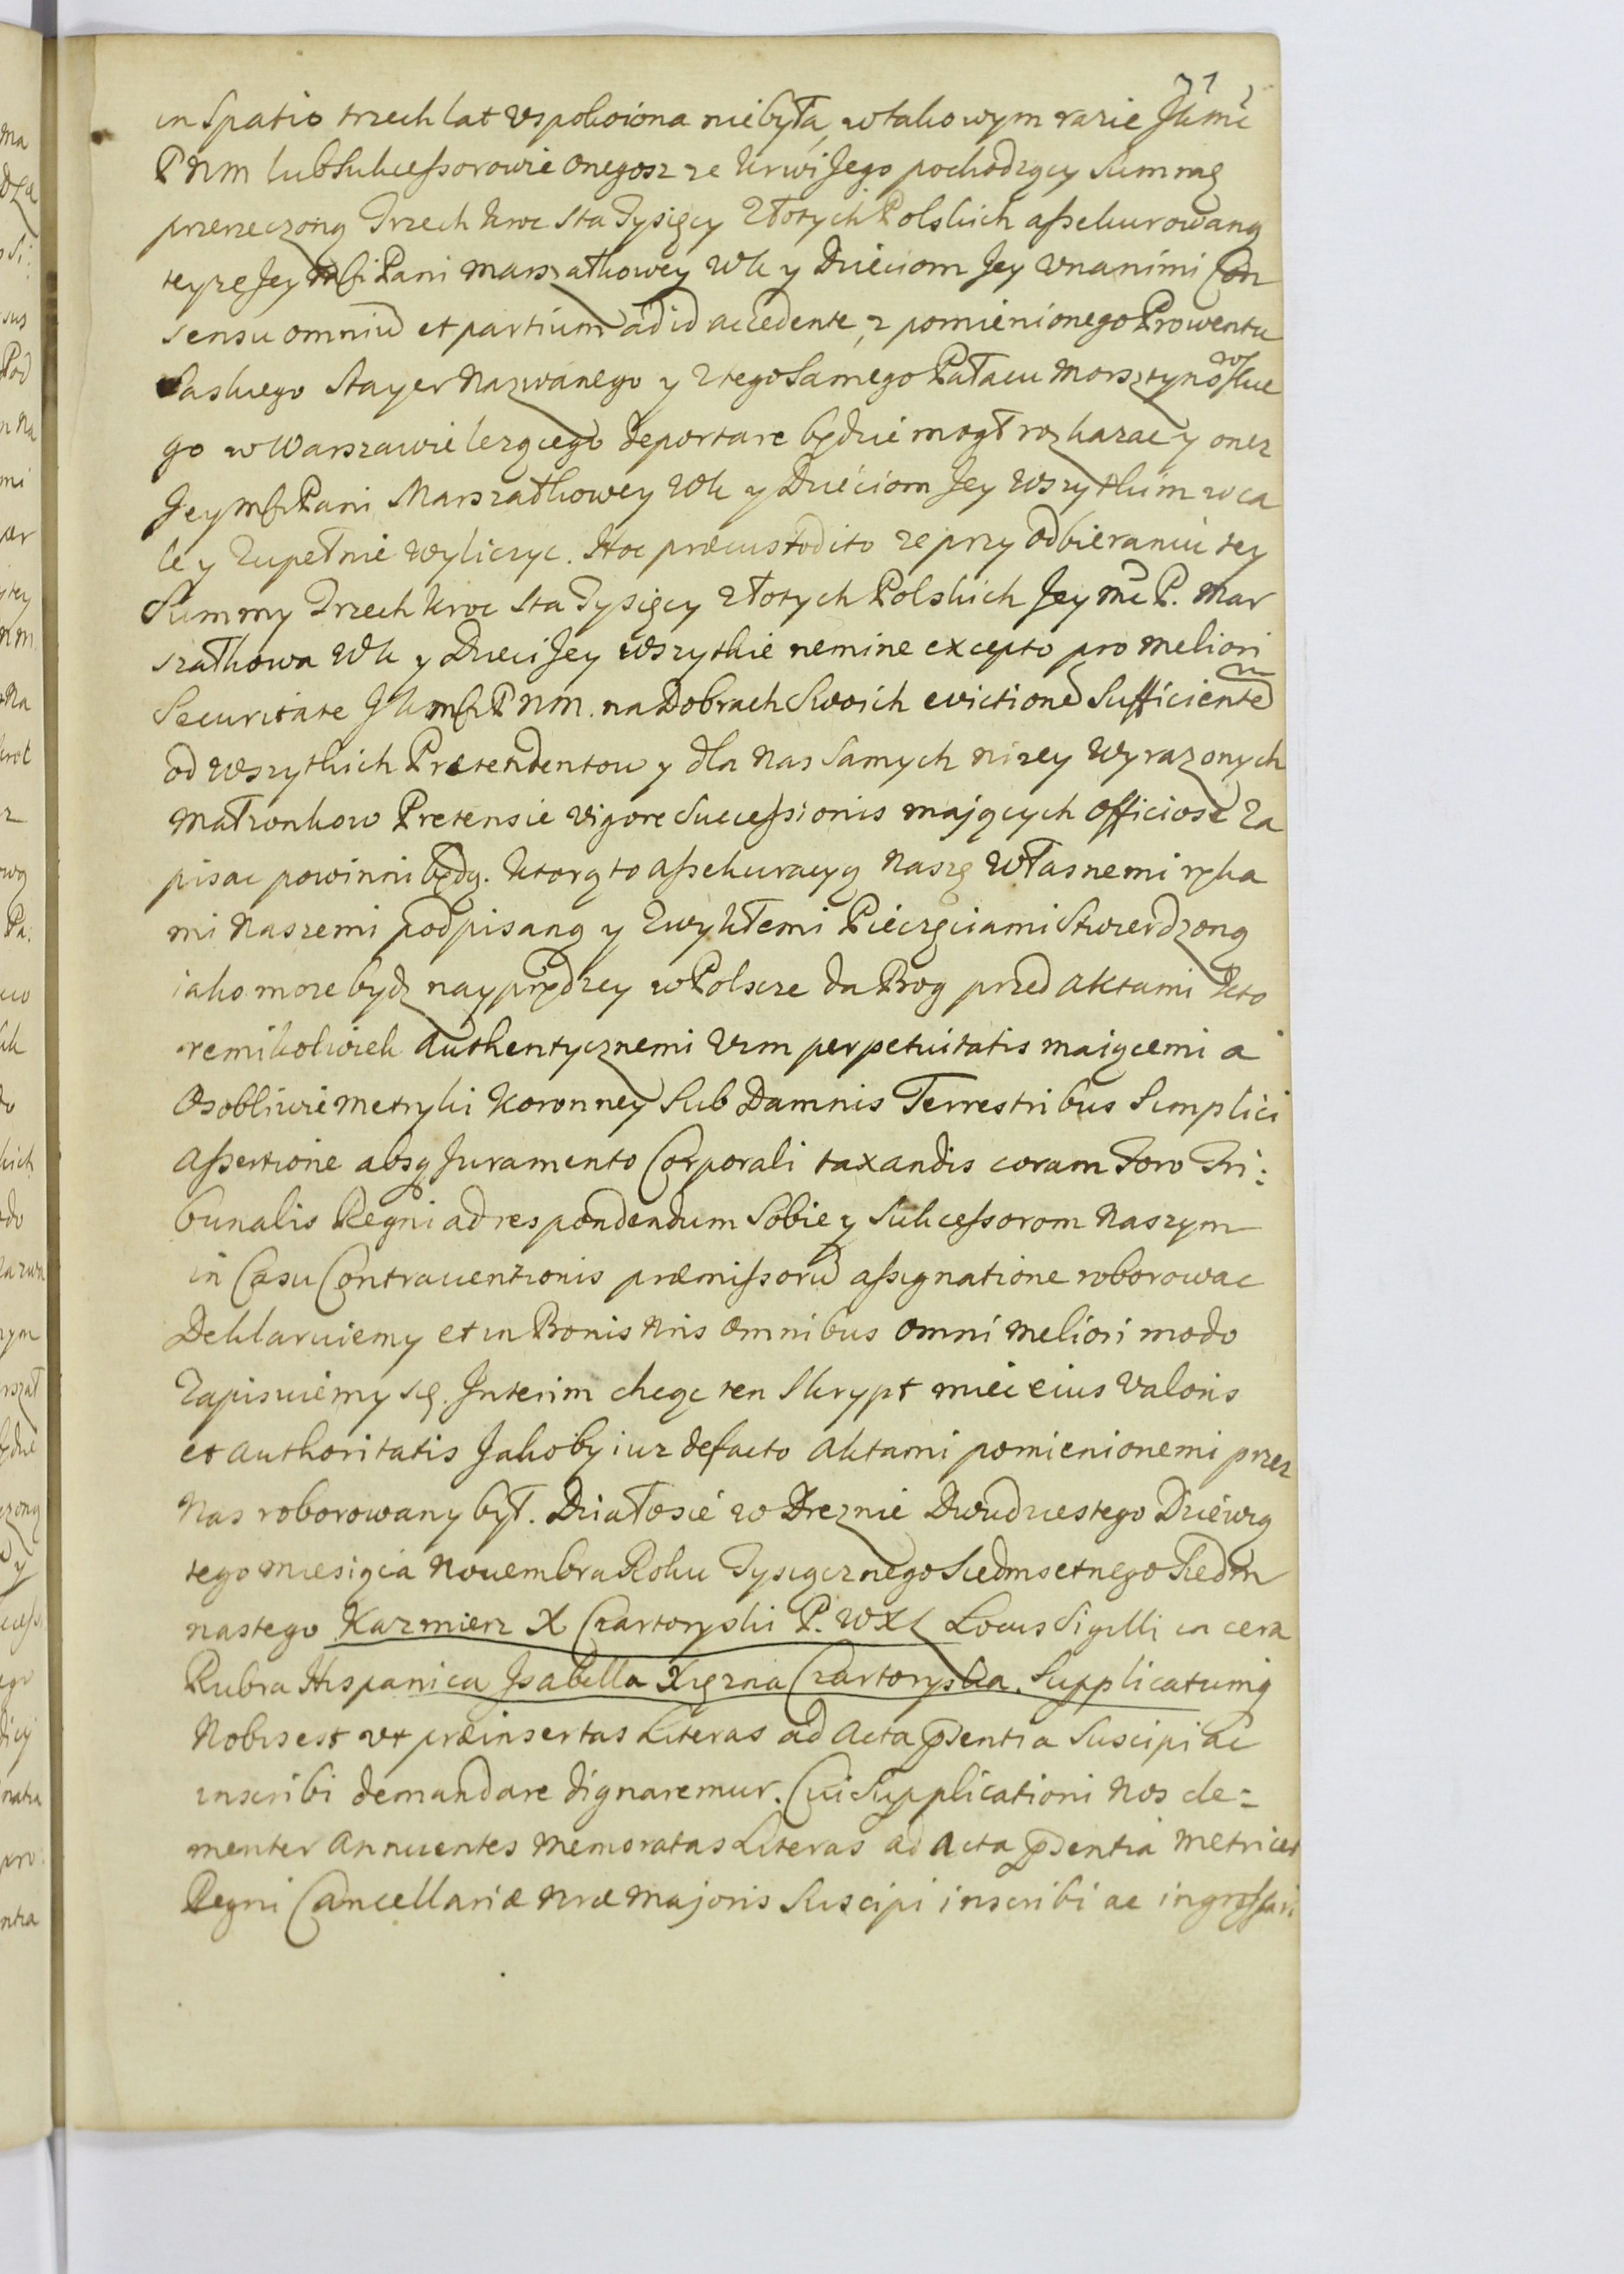 71
in Spatio trzech lat uspokoiona nie była, w takowym razie JKmć
PNM lub Sukcessorowie onegosz ze krwi Jego pochodzący Summę
przerzeczoną Trzech kroc Sta Tysięcy Złotych Polskich assekurowaną
teyże Jey Mści Pani Marszałkowey WK y Dzieciom Jey Vnanimi Con
sensu omniũ et partium ad id accedente, z pomienionego Prowentu
Saskiego Stayer Nazwanego y z tego Samego Pałacu Morsztynowskie
go w Warszawie lezącego deportare będzie mogł rozkazac y onez
Jey Mści Pani Marszałkowey WK y Dzieciom Jey Wszytkim w ca
le y Zupełnie wyliczyc. Hoc præcustodito ze przy odbieraniu tey
Summy Trzech kroc Sta Tysięcy złotych Polskich Jey Mć P. Mar
szałkowa WK y Dzieci Jey wszytkie nemine excepto pro meliori
Securitate JKMści PNM. na Dobrach Swoich evictionẽ Sufficientẽ
od wszytkich Prætendentow y dla Nas Samych nizey wyrazonych
Małzonkow Pretensie vigore Successionis mających officiose Za
pisac powinni będą. Ktorą to assekuracyą Naszę własnemi ręka
mi Naszemi podpisaną y Zwykłemi Pieczęciami Stwierdzoną
iako moze bydz nayprędzey w Polszcze da Bog przed Aktami kto
remikolwiek Authentycznemi Vim perpetuitatis maiącemi a
Osobliwie Metryki Koronney Sub Damnis Terrestribus Simplici
Assertione absq Juramento Corporali taxandis coram Foro Tri:
bunalis Regni ad respondendum Sobie y Sukcessorom Naszym
in Casu Contrauentionis præmissorũ assignatione roborowac
Deklaruiemy et in Bonis Nris Omnibus omni meliori modo
Zapisuiemy się. Interim chcąc ten Skrypt miec eius Valoris
et authoritatis Jakoby iuz de facto Aktami pomienionemi przez
Nas roborowany był. Działosie w Dreznie Dwudziestego Dziewią
tego Miesiąca Nouembra Roku Tysiącznego Siedmsetnego Siedm
nastego Kazmierz X Czartoryski P. W X L Locus Sigilli in cera
Rubra Hispanica Jsabella Xięzna Czartoryska. Supplicatumq
Nobis est vt præinsertas Literas ad Acta p̃sentia Suscipi ac
inscribi demandare dignaremur. Cui Supplicationi Nos cle=
menter Annuentes Memoratas Literas ad Acta p̃sentia Metrices
Regni Cancellariæ Nræ Majoris Suscipi inscribi ac ingrossari